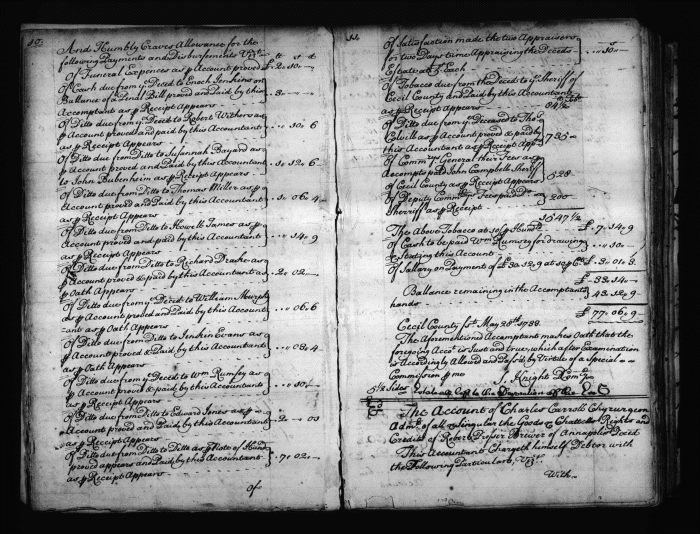 And Humbly Craves Allowance for the
following Payments and Disbursements Vizt.
Of Funeral Expences as p Account proved £ 2 „ 10 „ —
Of Cash due from ye. Deced to Enoch Jenkins on
Ballance of a Penal Bill proved and paid by this
Accomptant as p Receipt Appears
Of Ditto due from ye Deced to Robert Withers as
p Account proved and paid by this Accountant „ 10 „ 6
as p Receipt Appears
Of Ditto due from Ditto to Susannah Bayard as
p Account proved and Paid by this Accountant 3 „ 12 „ 6
to John Bubenheim as p Receipt Appears
Of Ditto due from Ditto to Thomas Miller as p
Account proved and Paid by this Accountant
as p Receipt Appears
Of Ditto due from Ditto to Howell James as p
Account proved and paid by this Accountant „ 14 „ 9
as p Receipt Appears
Of Ditto due from Ditto to Richard Drake as
p Account proved & paid by this Accountant as 2 „ 02 „ —
p Oath Appears
Of Ditto due from ye Deced to William Murph
as p Account proved and Paid by this Accountant „ 06 „ 6
as p Oath Appears
Of Ditto due from Ditto to Jenkin Evans as
p Account proved & Paid by this Accountant
as p Oath Appears
Of Ditto due from ye Deced to Wm Rumsey as
p Account proved & Paid by this Accountant
as p Receipt Appears
Of Ditto due from Ditto to Edward Jones as p
Account proved and Paid by this Accountant
as p Receipt Appears
Of Ditto due from Ditto to Ditto as p Note of Hand
proved appears and Paid by this Accountant 7 „ 02 „ —
as p Receipt Appears
Of
Of Satisfaction made the two Appraisers
for two Days time Appraising the Deceds
Estate at 5/ Each
Of Tobacco due from the Deced to ye Sheriff of
Cecil County and Paid by this Accountant
as p Receipt Appears 84½
Of Ditto due from ye Deceased to Tho
Colvill as p Account proved & paid by 735
this Accountant as p Receipt App
Of Commry General their Fees as p
Accompt paid John Campbell Sheriff 528
of Cecil County as p Receipt Appears
Of Deputy Commrys Fees paid Do 200
Sherriff as p Receipt
1547½
The Above Tobacco at 10/ p Hund £ 7 „ 14 „ 9
Of Cash to be paid Wm Rumsey for drawing
& Stating this Account „ 10 „ —
Of Sallary on Payment of £ 30 „ 12 „ 9 at 10 p Ct £ 3 „ 01 „ 3
£ 33 „ 14 „ —
Ballance remaining in the Accomptants
hands 43 „ 12 „ 9
£ 77 „ 06 „ 9
Cecil County sst. May 25th. 1738.
The Aforementioned Accomptant makes Oath that the
foregoing Acct. is Just and true, which after Examination
is Accordingly Allowed and Past by Virtue of a Special
Commission p me
S. Knight
5½ sides
The Account of Charles Carroll Chyrurgeon
Admr. of all & singular the Goods Chattells Rights and
Credits of Robert Brewer of Annapolis Deced
This Accountant Chargeth himself Debtor with
the Following Particulars, Vizt.
With